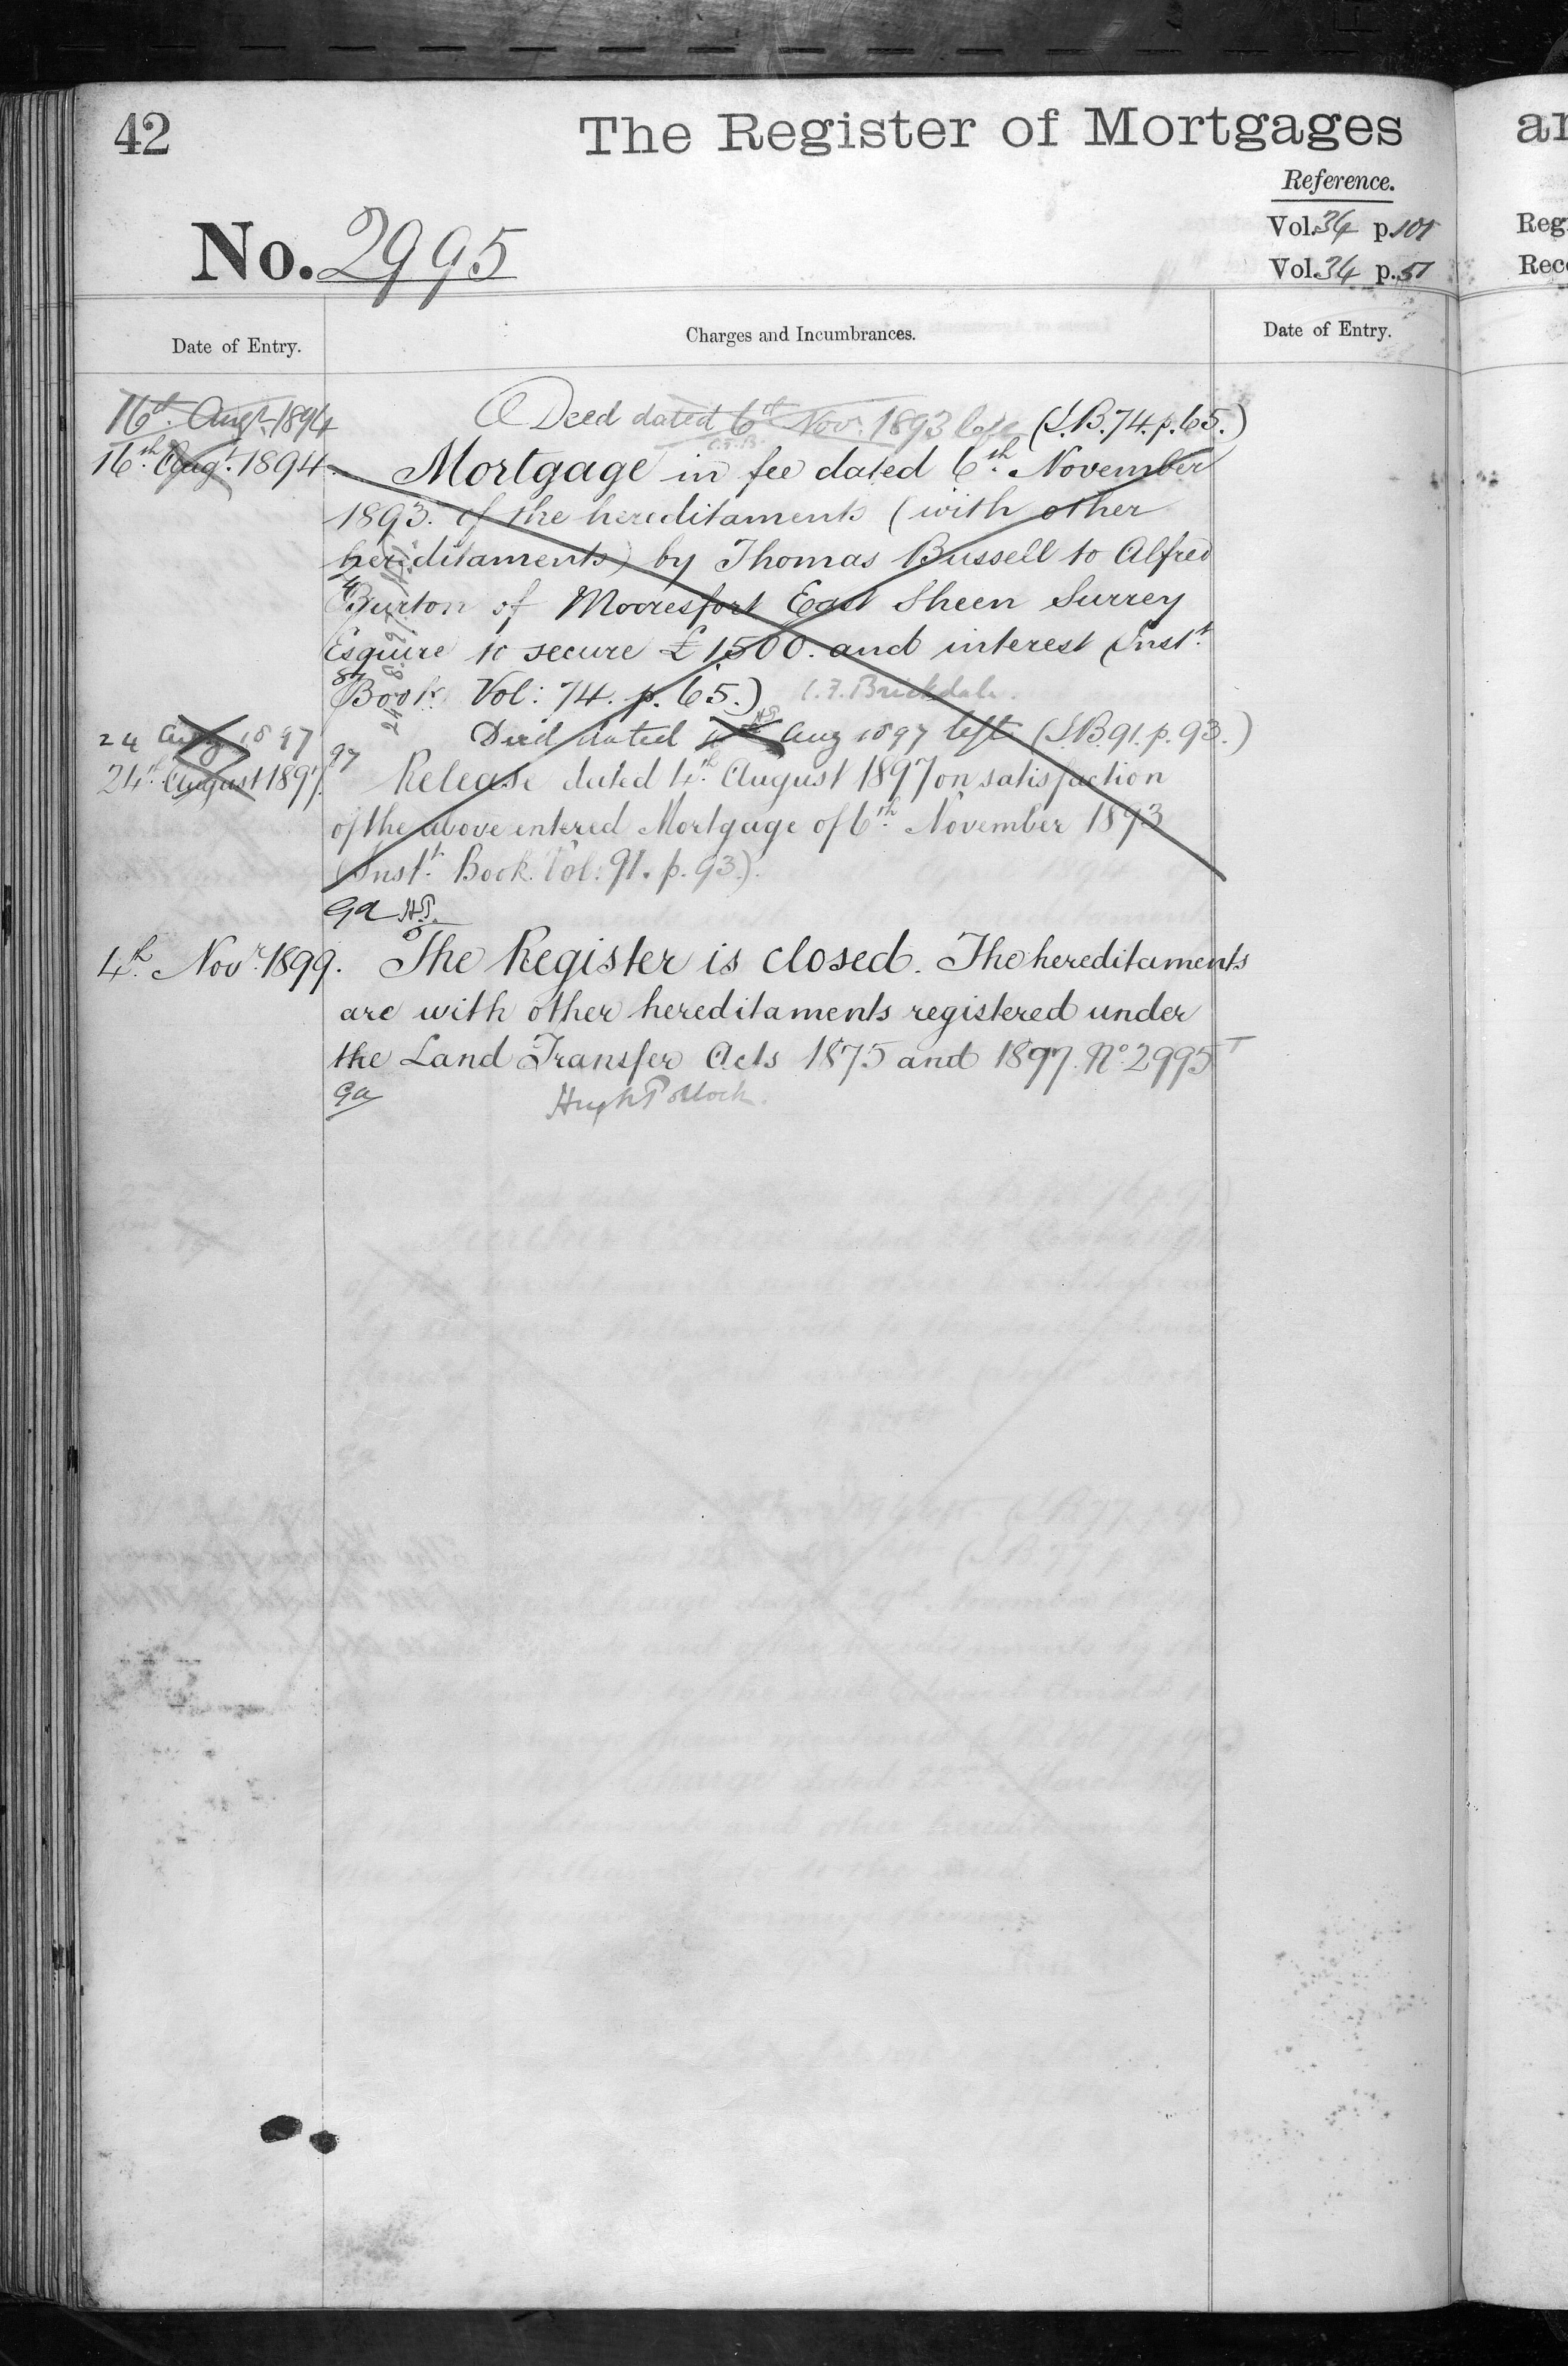 42
The Register of Mortgages
Reference.
No. 2995
Vol. 34 p. 101
Vol. 34 p. 51
Reg
Rec
Date of Entry.
Charges and Incumbrances.
Date of Entry.
16th Augt. 1894
A Deed dated 6th Nov. 1893 left (I.B. 74. p. 65.)
C.F.B.
16th Augt. 1894. Mortgage in fee dated 6th November
1893. of the hereditaments (with other
hereditaments) by Thomas Bussell to Alfred
Burton of Mooresfort East Sheen Surrey
Esquire to secure £1500. and interest (Inst.t
Book Vol: 74. p. 65.) C.F. Brickdale.
24 Aug 1897 Deed dated Aug 1897 left (I.B. 91. p. 93.)
24th August 1897. Release dated 4th August 1897 on satisfaction
of the above entered Mortgage of 6th November 1893
(Inst.t Book. Vol: 91. p. 93).
ga H.P.
4th Novr. 1899. The Register is closed. The hereditaments
are with other hereditaments registered under
the Land Transfer Acts 1875 and 1897. No. 2995
ga Hugh Pollock.